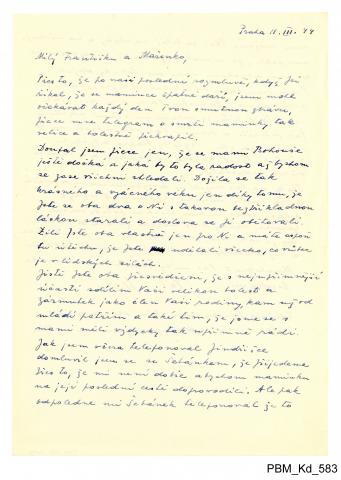 Praha 11. III. 44
Milý Františku a Mařenko,
Přes to, že po naší poslední rozmluvě, když jsi
říkal, že se mamince špatně daří, jsem mohl
očekávat každý den Tvou smutnou zprávu,
přece mne telegram o smrti maminky tak
velice a bolestně překvapil.
Doufal jsem přece jen, že se mami Bohouše
ještě dočká a jaká by to byla radost až bychom
se zase všichni shledali. Dožila se tak
krásného a vzácného věku jen díky tomu, že
jste se oba dva o Ni s takovou bezpříkladnou
láskou starali a doslova se jí obětovali.
Žili jste oba vlastně jen pro Ni a máte aspoň
tu útěchu, že jste udělali všecko, co vůbec
je v lidských silách.
Jistě jste oba přesvědčeni, že s nejupřímnější
účastí sdílím Vaši velikou bolest a
zármutek jako člen Vaší rodiny, kam už od
mládí patřím a také tím, že jsme se s
mami měli vždycky tak upřímně rádi.
Jak jsem včera telefonoval Jindřišce
domluvil jsem se se Šebánkem, že přijedeme
přes to, že mi není dobře abychom maminku
na její poslední cestě doprovodili. Ale pak
odpoledne mi Šebánek telefonoval že to
PBM_Kd_583